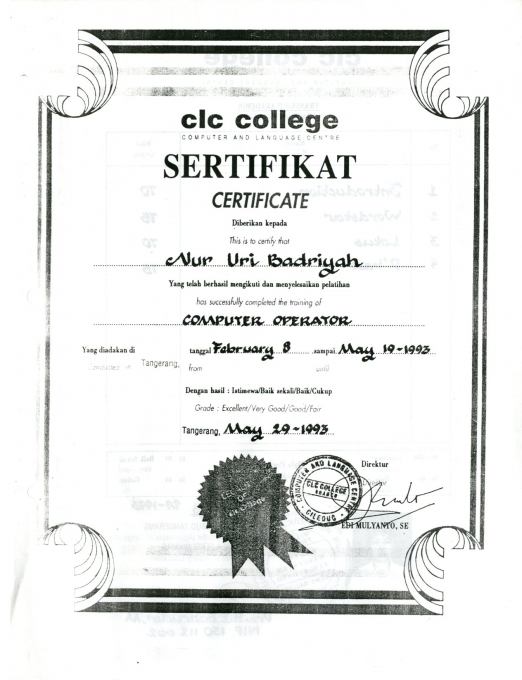 clc college
COMPUTER AND LANGUAGE CENTRE
SERTIFIKAT
CERTIFICATE
Diberikan kepada
This is to certify that
Nur Uri Badriyah
Yang telah berhasil mengikuti dan menyelesaikan pelatihan
has successfully completed the training of
COMPUTER OPERATOR
Yang diadakan di Tangerang, tanggal February 8 sampai May 19-1993
from until
Dengan hasil : Istimewa/Baik sekali/Baik/Cukup
Grade : Excellent/Very Good/Good/Fair
Tangerang, May 29-1993
Direktur
COMPUTER AND LANGUAGE CENTRE
CLC COLLEGE
CILEDUG
EDI MULYANTO, SE